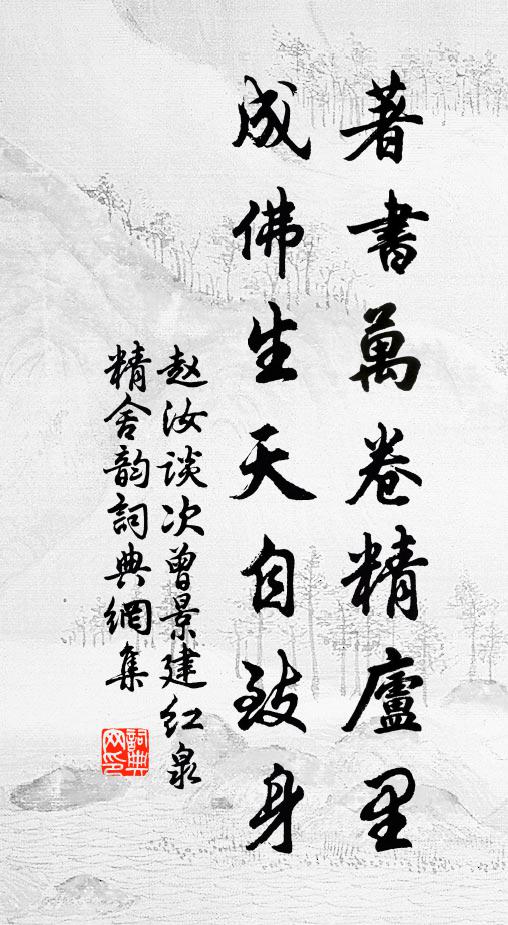 著書萬卷精廬里
成佛生天自致身
赵汝谈次曾景建红泉
精舍韵詞典網集
詞典网印